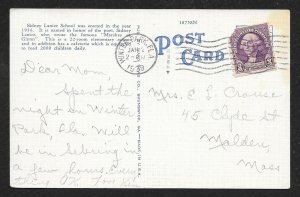 Sidney Lanier School was erected in the year
1936. It is named in honor of the poet, Sidney
Lanier, who wrote the famous "Marshes of
Glynn". This is a 22-room elementary school
and in addition has a cafeteria which is equipped
to feed 2000 children daily.
187509
POST
CARD
FLA
JAN
1939
3
Dear Mom,
Spent the
night in Winter
Park, Fla. Will
be in Sebring in
a few hours. Every
thing O.K.
Mrs. E L Crouse
45 Clyde St
Malden,
Mass